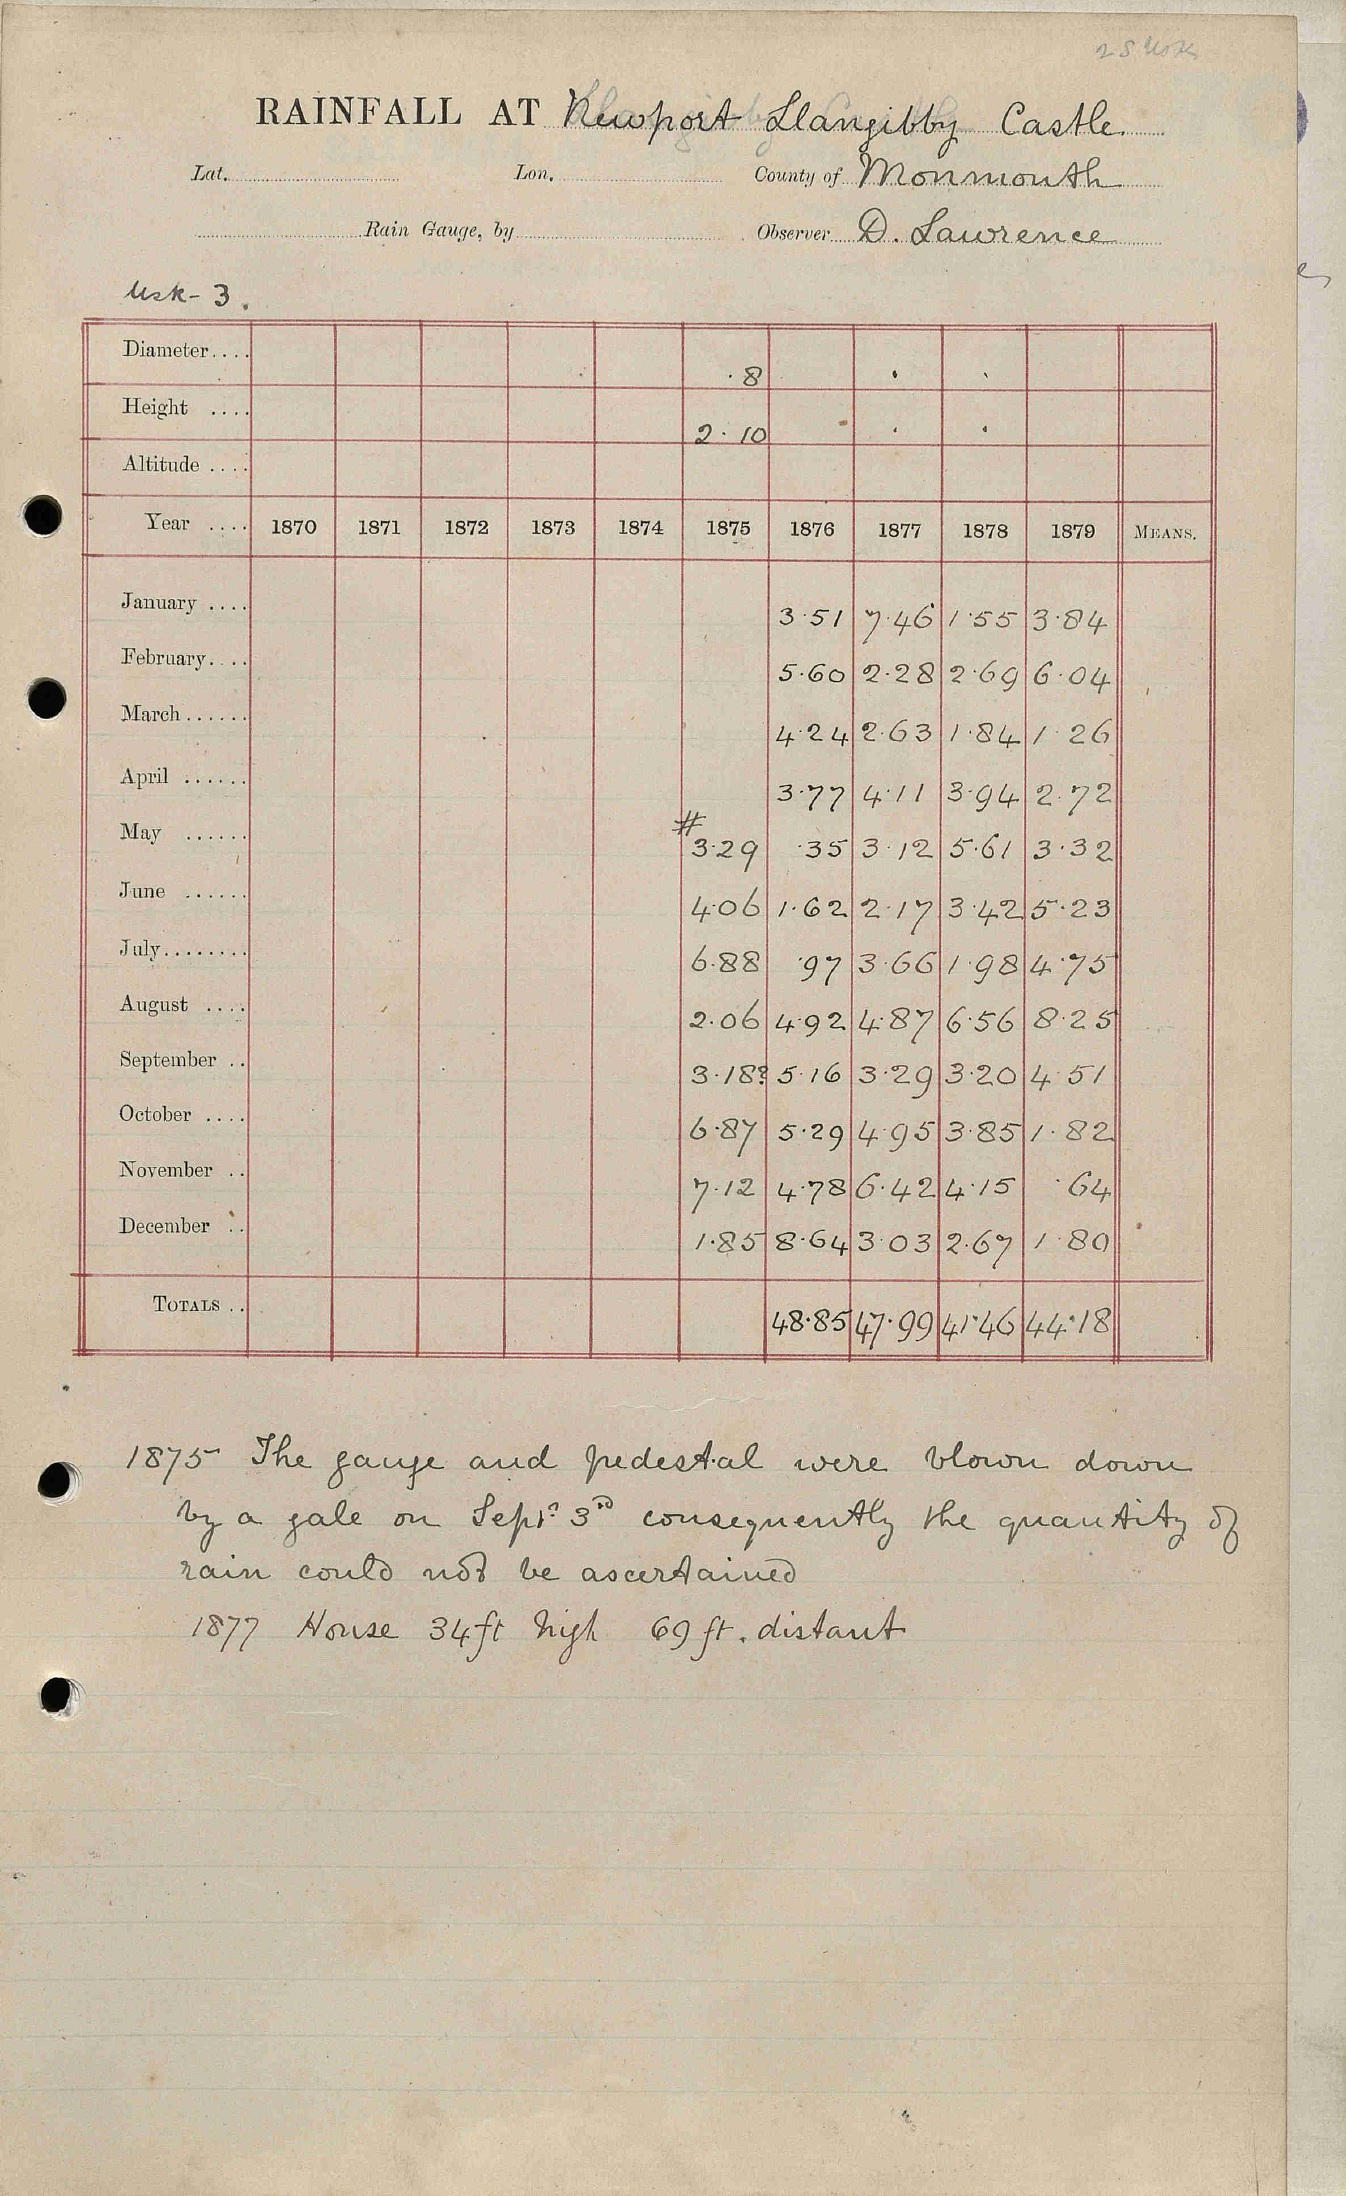 28 Usk
RAINFALL AT Newport Llangibby Castle
Lat. Lon. County of Monmouth
Rain Gauge, by Observer D. Lawrence
Usk - 3.
Diameter.... ·8 · ·
Height .... 2·10 · ·
Altitude ....
Year .... 1870 1871 1872 1873 1874 1875 1876 1877 1878 1879 MEANS.
January .... 3·51 7·46 1·55 3·84
February.... 5·60 2·28 2·69 6·04
March...... 4·24 2·63 1·84 1·26
April ...... 3·77 4·11 3·94 2·72
May ...... # 3·29 ·35 3·12 5·61 3·32
June ...... 4·06 1·62 2·17 3·42 5·23
July........ 6·88 ·97 3·66 1·98 4·75
August .... 2·06 4·92 4·87 6·56 8·25
September .. 3·18? 5·16 3·29 3·20 4·51
October .... 6·87 5·29 4·95 3·85 1·82
November .. 7·12 4·78 6·42 4·15 ·64
December .. 1·85 8·64 3·03 2·67 1·80
TOTALS .. 48·85 47·99 41·46 44·18
1875 The gauge and pedestal were blown down
by a gale on Sept. 3rd consequently the quantity of
rain could not be ascertained
1877 House 34 ft high 69 ft. distant